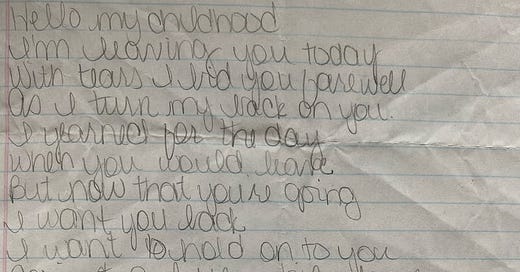 Hello my childhood
I'm leaving you today
With tears I bid you farewell
As I turn my back on you.
I yearned for the day
when you would leave
But now that you're going
I want you back
I want to hold on to you